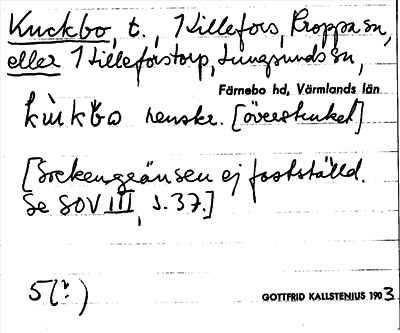 Kuckbo, t., Killefors, Kroppa sn,
eller Killeforstorp, Lungsunds sn,
Färnebo hd, Värmlands län
kùkbo [överstruket]
[Sockengränsen ej fastställd.
Se SOV III, s. 37.]
5(?)
GOTTFRID KALLSTENIUS 1903